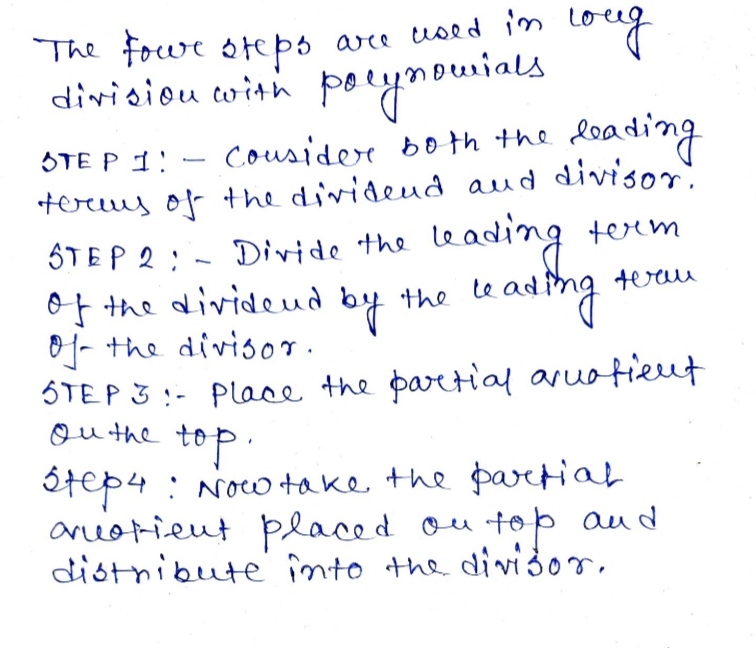 The four steps are used in long
division with polynomials
STEP 1: - Consider both the leading
terms of the dividend and divisor.
STEP 2 : - Divide the leading term
of the dividend by the leading term
of the divisor.
STEP 3 :- Place the partial quotient
on the top.
Step4 : Now take the partial
quotient placed on top and
distribute into the divisor.